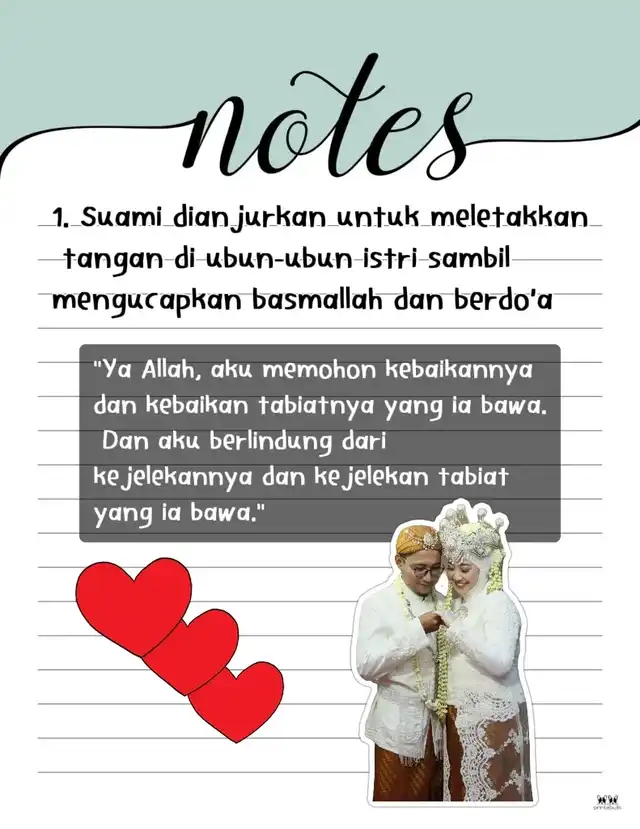 notes
1. Suami dianjurkan untuk meletakkan
tangan di ubun-ubun istri sambil
mengucapkan basmallah dan berdo'a
"Ya Allah, aku memohon kebaikannya
dan kebaikan tabiatnya yang ia bawa.
Dan aku berlindung dari
kejelekannya dan kejelekan tabiat
yang ia bawa."